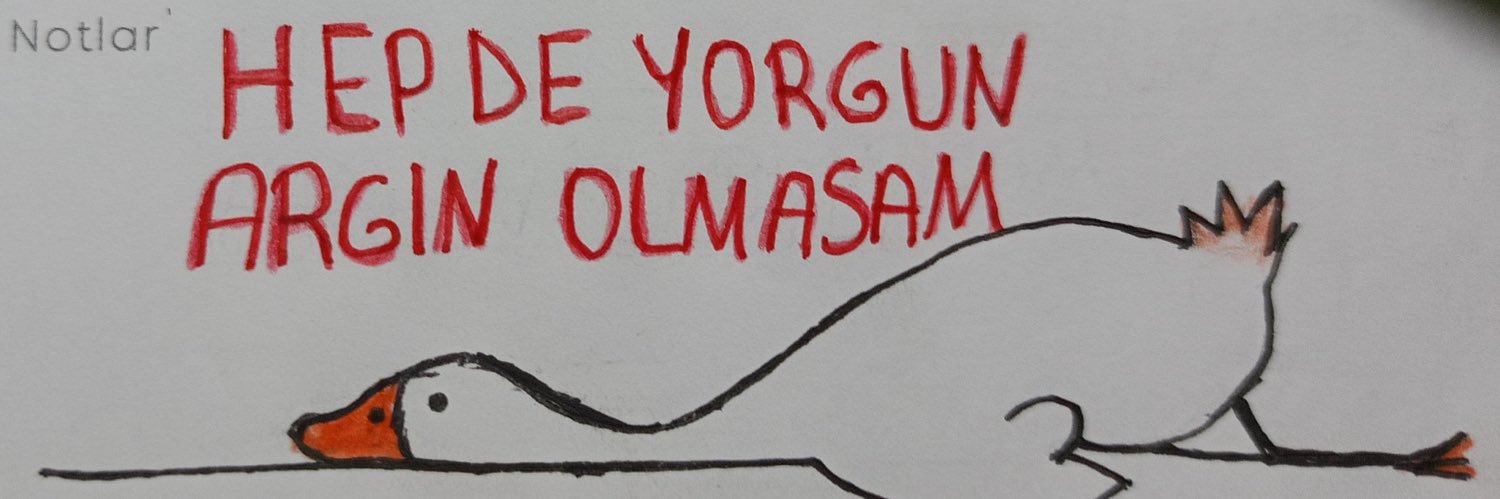 Notlar
HEP DE YORGUN
ARGIN OLMASAM